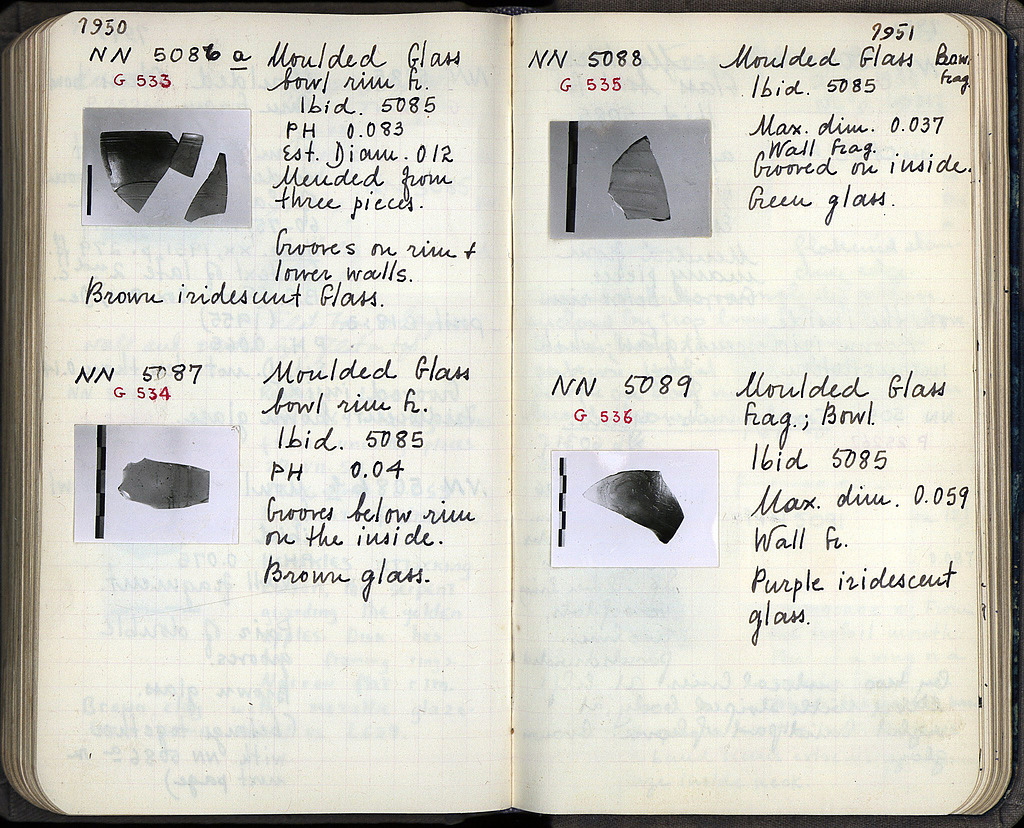 1950
NN 5086 a Moulded Glass
G 533 bowl rim fr.
Ibid. 5085
PH 0.083
Est. Diam. 012
Mended from
three pieces.
Grooves on rim +
lower walls.
Brown iridescent Glass.
NN 5087 Moulded Glass
G 534 bowl rim fr.
Ibid. 5085
PH 0.04
Grooves below rim
on the inside.
Brown glass.
1951
NN 5088 Moulded Glass Bowl
G 535 Ibid. 5085 frag.
Max. dim. 0.037
Wall frag.
Grooved on inside.
Green glass.
NN 5089 Moulded Glass
G 536 frag.; Bowl.
Ibid 5085
Max. dim. 0.059
Wall fr.
Purple iridescent
glass.